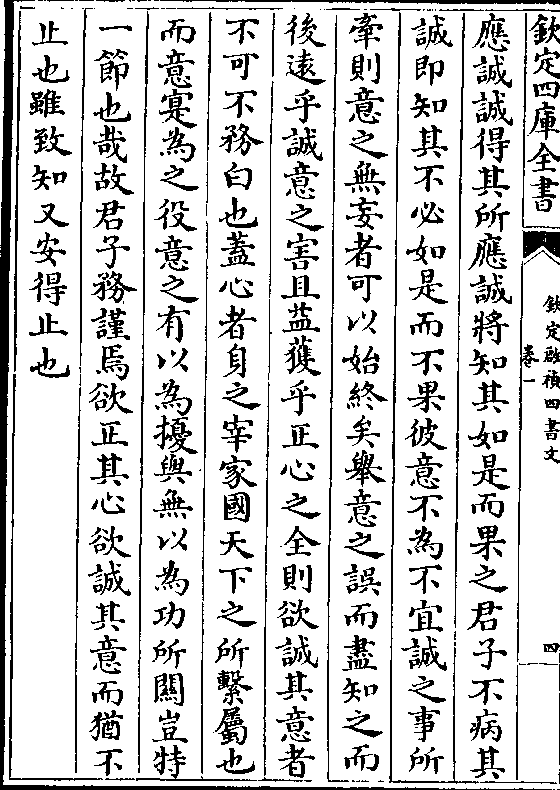 欽定四庫全書
欽定啟禎四書文
卷一
四
應誠誠得其所應誠將知其如是而果之君子不病其
誠即知其不必如是而不果彼意不為不宜誠之事所
牽則意之無妄者可以始終矣舉意之誤而盡知之而
後遠乎誠意之害且益獲乎正心之全則欲誠其意者
不可不務白也蓋心者身之宰家國天下之所繫屬也
而意寔為之役意之有以為擾與無以為功所關豈特
一節也哉故君子務謹焉欲正其心欲誠其意而猶不
止也雖致知又安得止也